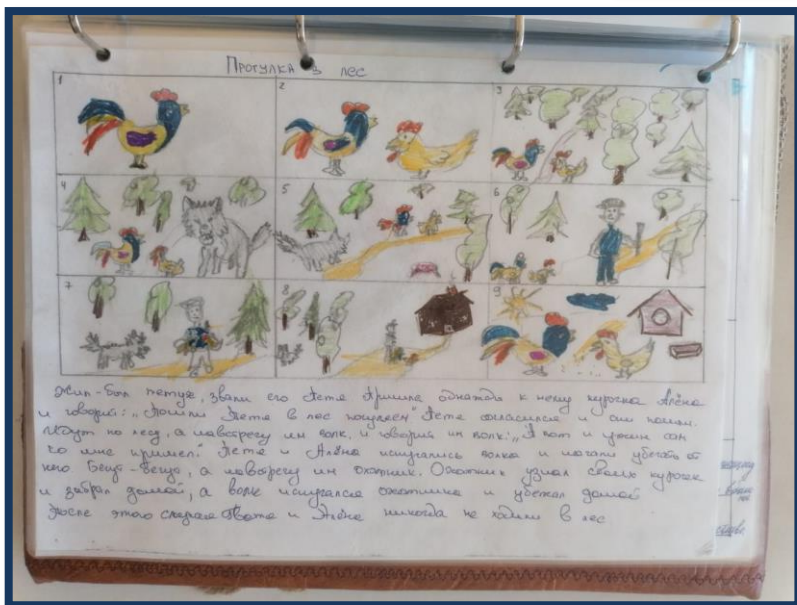 Прогулка в лес
1
2
3
4
5
6
7
8
9
Жил-был петух, звали его Петя Пришла однажды к нему курочка Алёна
и говорит: „Пошли Петя в лес погуляем" Петя согласился и они пошли.
Идут по лесу, а навстречу им волк, и говорит им волк: „А вот и ужин сам
ко мне пришел." Петя и Алёна испугались волка и начали убегать от
него Бегут-бегут, а навстречу им охотник. Охотник узнал своих курочек
и забрал домой, а волк испугался охотника и убежал домой
После этого случая Петя и Алёна никогда не ходили в лес